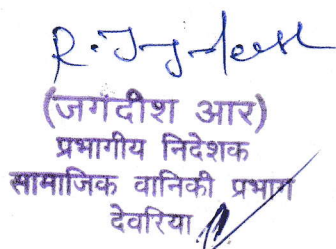 R. Jagdeesh
(जगदीश आर)
प्रभागीय निदेशक
सामाजिक वानिकी प्रभाग
देवरिया